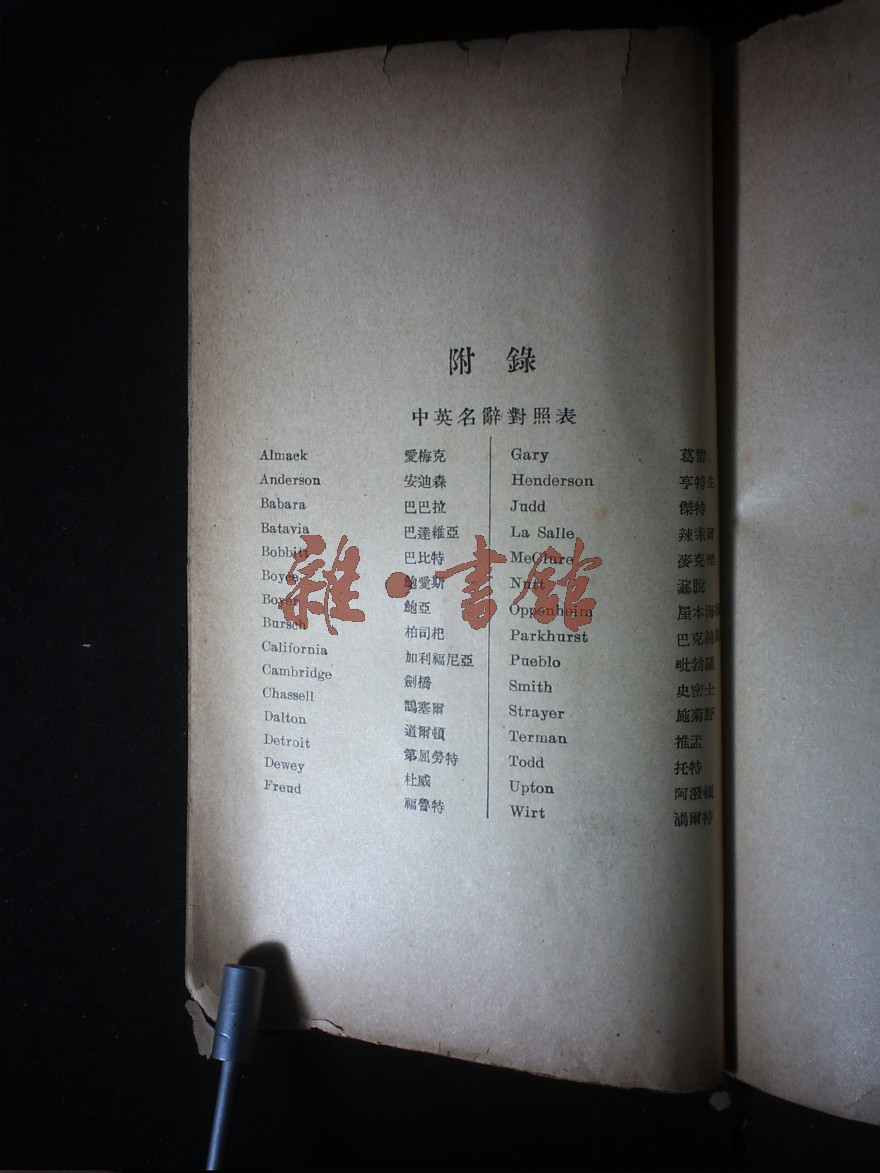 附錄
中英名辭對照表
Almack 愛梅克
Anderson 安迪森
Babara 巴巴拉
Batavia 巴達維亞
Bobbitt 巴比特
Boyce 鮑愛斯
Boyer 鮑亞
Bursch 柏司杞
California 加利福尼亞
Cambridge 劍橋
Chassell 鵲塞爾
Dalton 道爾頓
Detroit 第屈勞特
Dewey 杜威
Freud 福魯特
Gary 葛雷
Henderson 亨特生
Judd 傑特
La Salle 辣索爾
McClure 麥克樂
Nutt 脫
Oppenheim 屋本海
Parkhurst 巴克赫
Pueblo 毗勃羅
Smith 史密士
Strayer 施菊野
Terman 推孟
Todd 托特
Upton 阿潑頓
Wirt 渦爾特
雜·書館